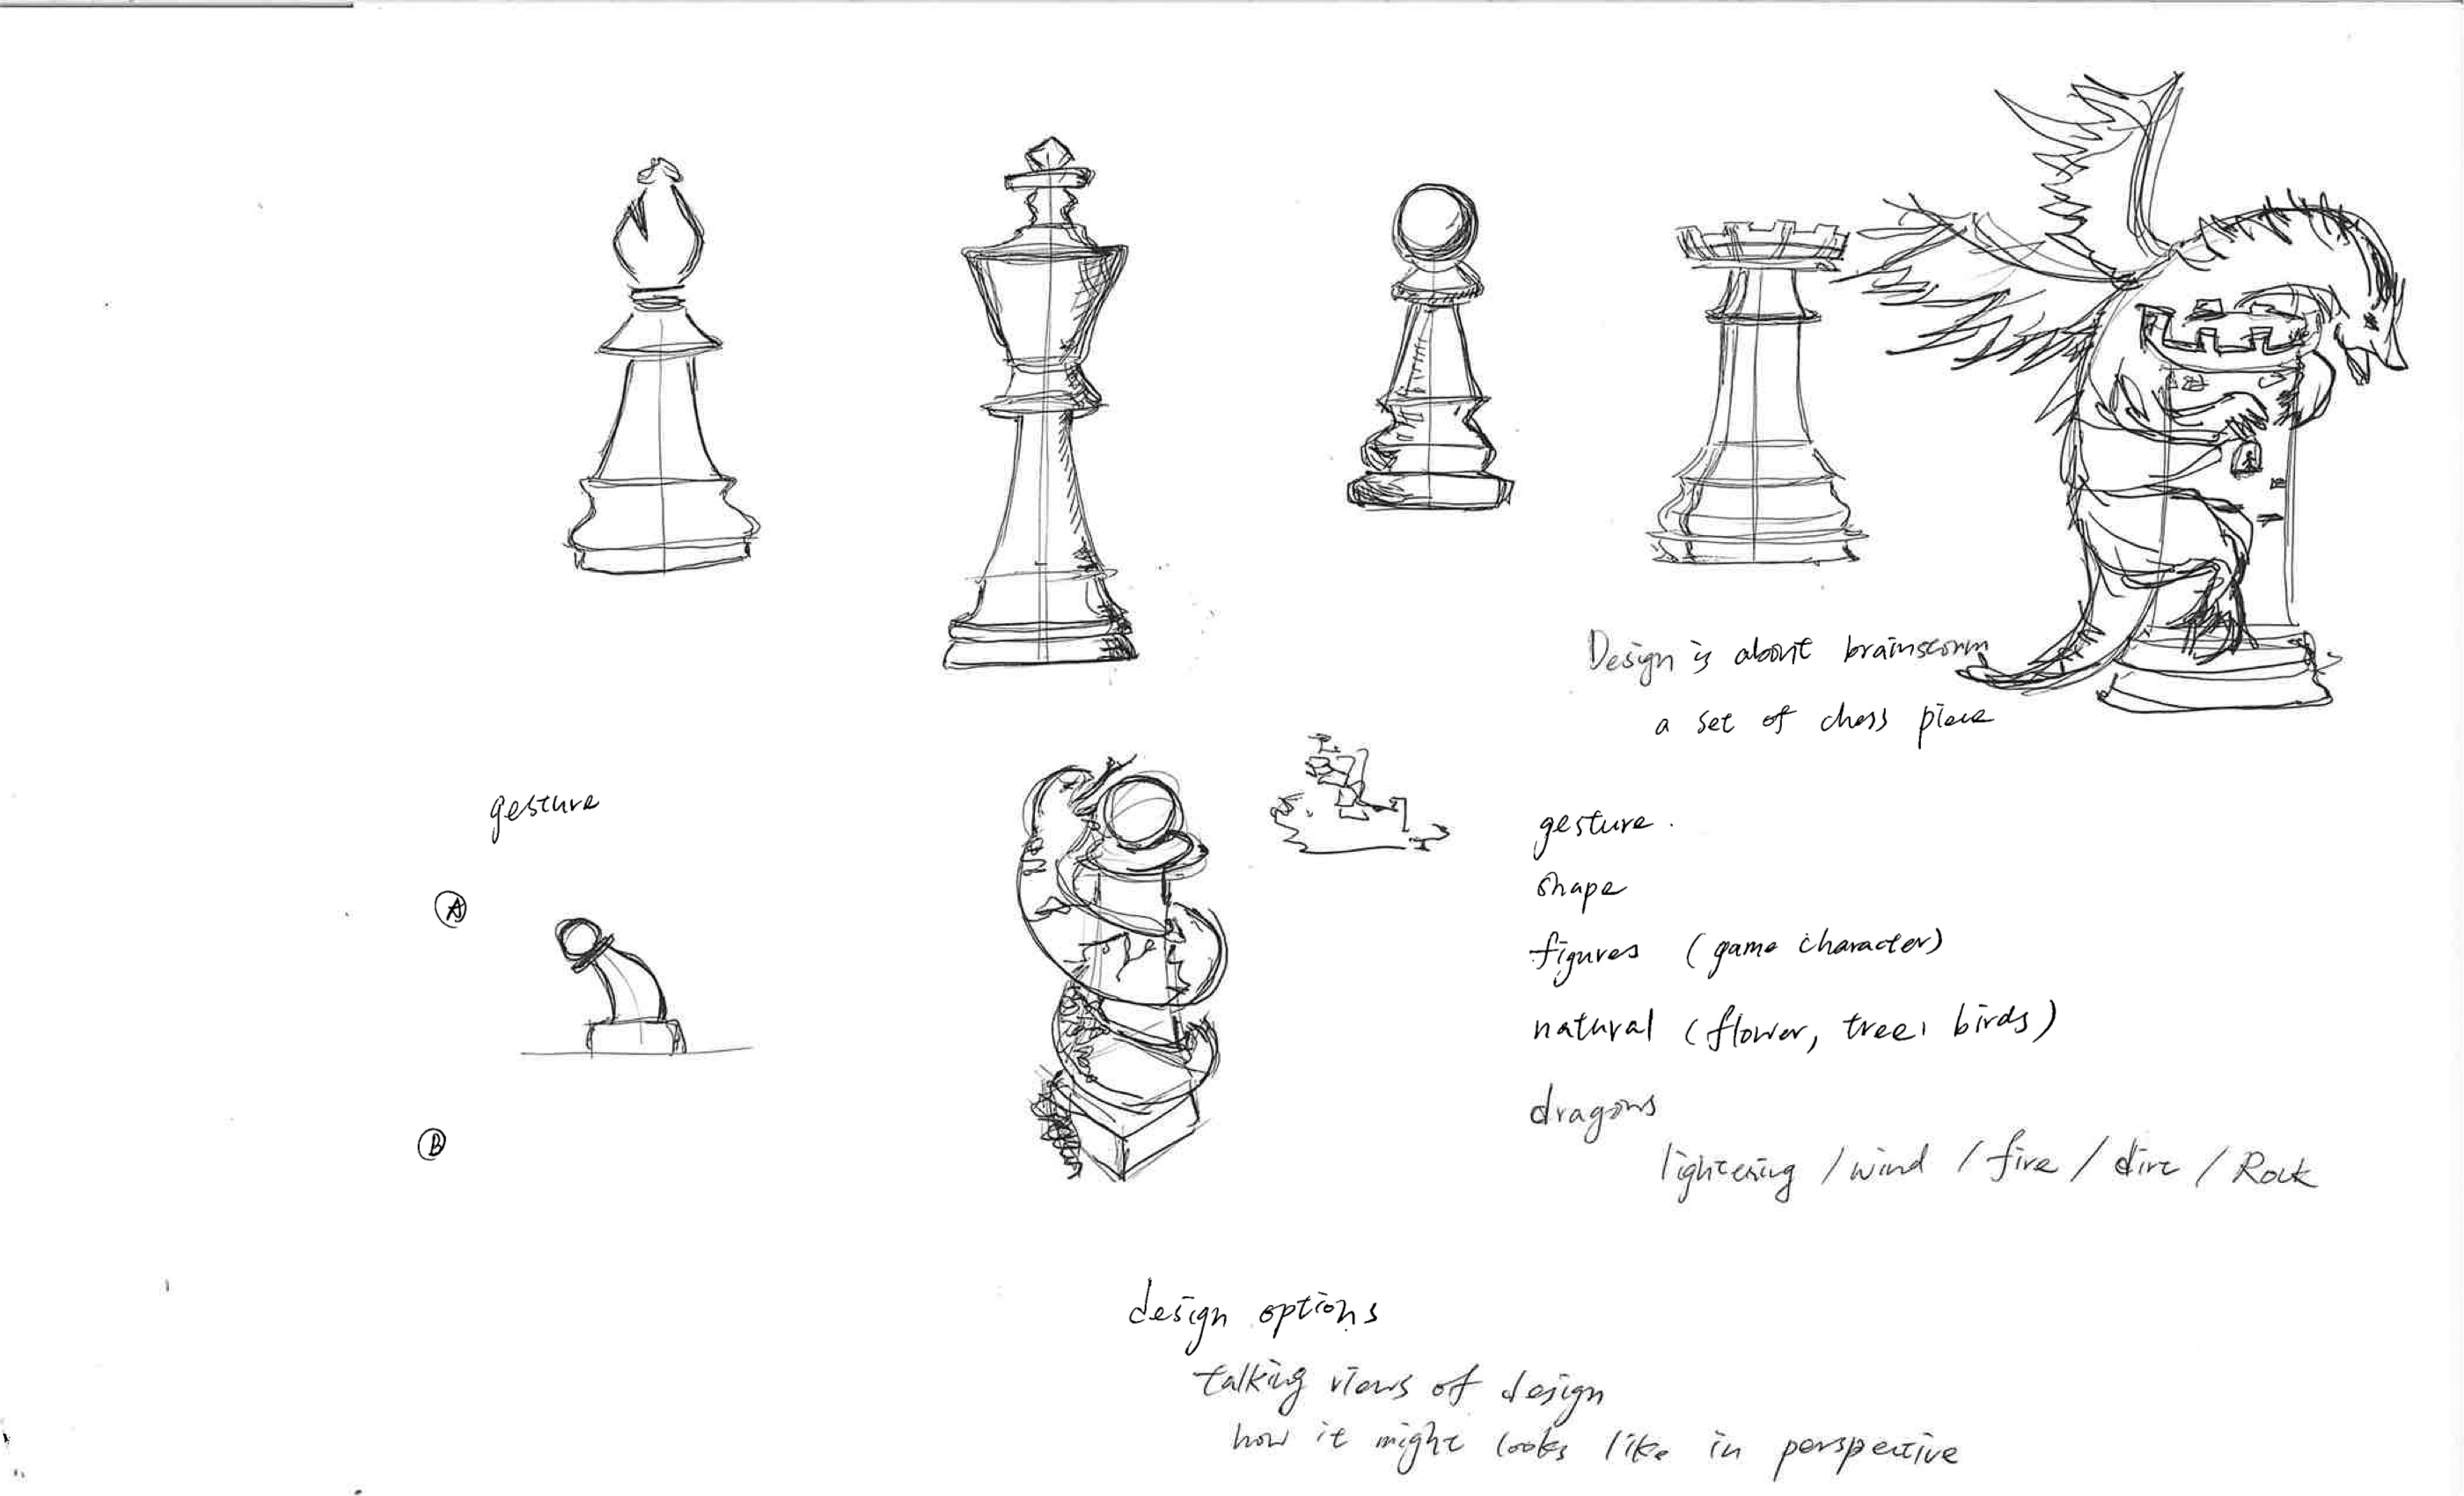 Design is about brainstorm
a set of chess piece
gesture
gesture.
shape
figures (game character)
natural (flower, tree, birds)
Ⓐ
Ⓑ
dragons
lightening / wind / fire / dirt / Rock
design options
talking views of design
how it might looks like in perspective